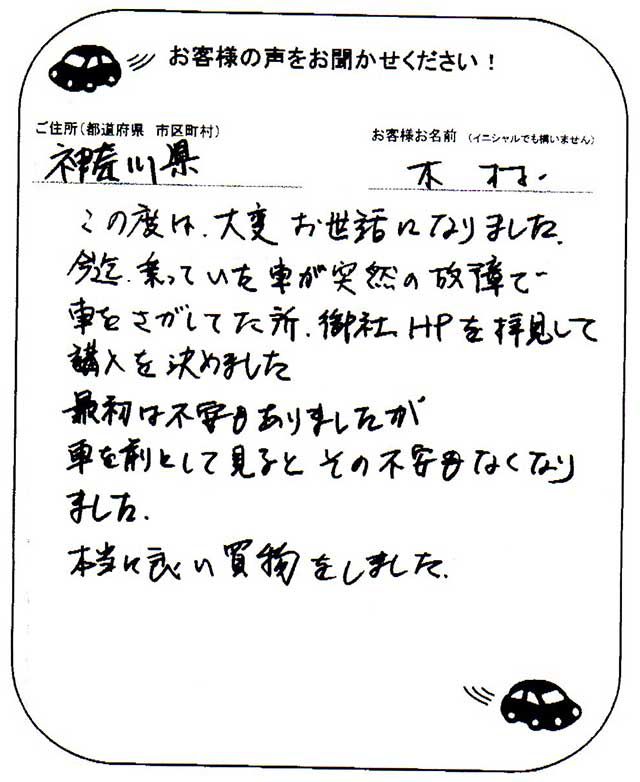 お客様の声をお聞かせください！
ご住所（都道府県　市区町村）
お客様お名前　（イニシャルでも構いません）
神奈川県
木村
この度は、大変お世話になりました。
今迄、乗っていた車が突然の故障で
車をさがしてた所、御社HPを拝見して
講入を決めました
最初は不安もありましたが
車を前として見るとその不安もなくなり
ました。
本当に良い買物をしました。